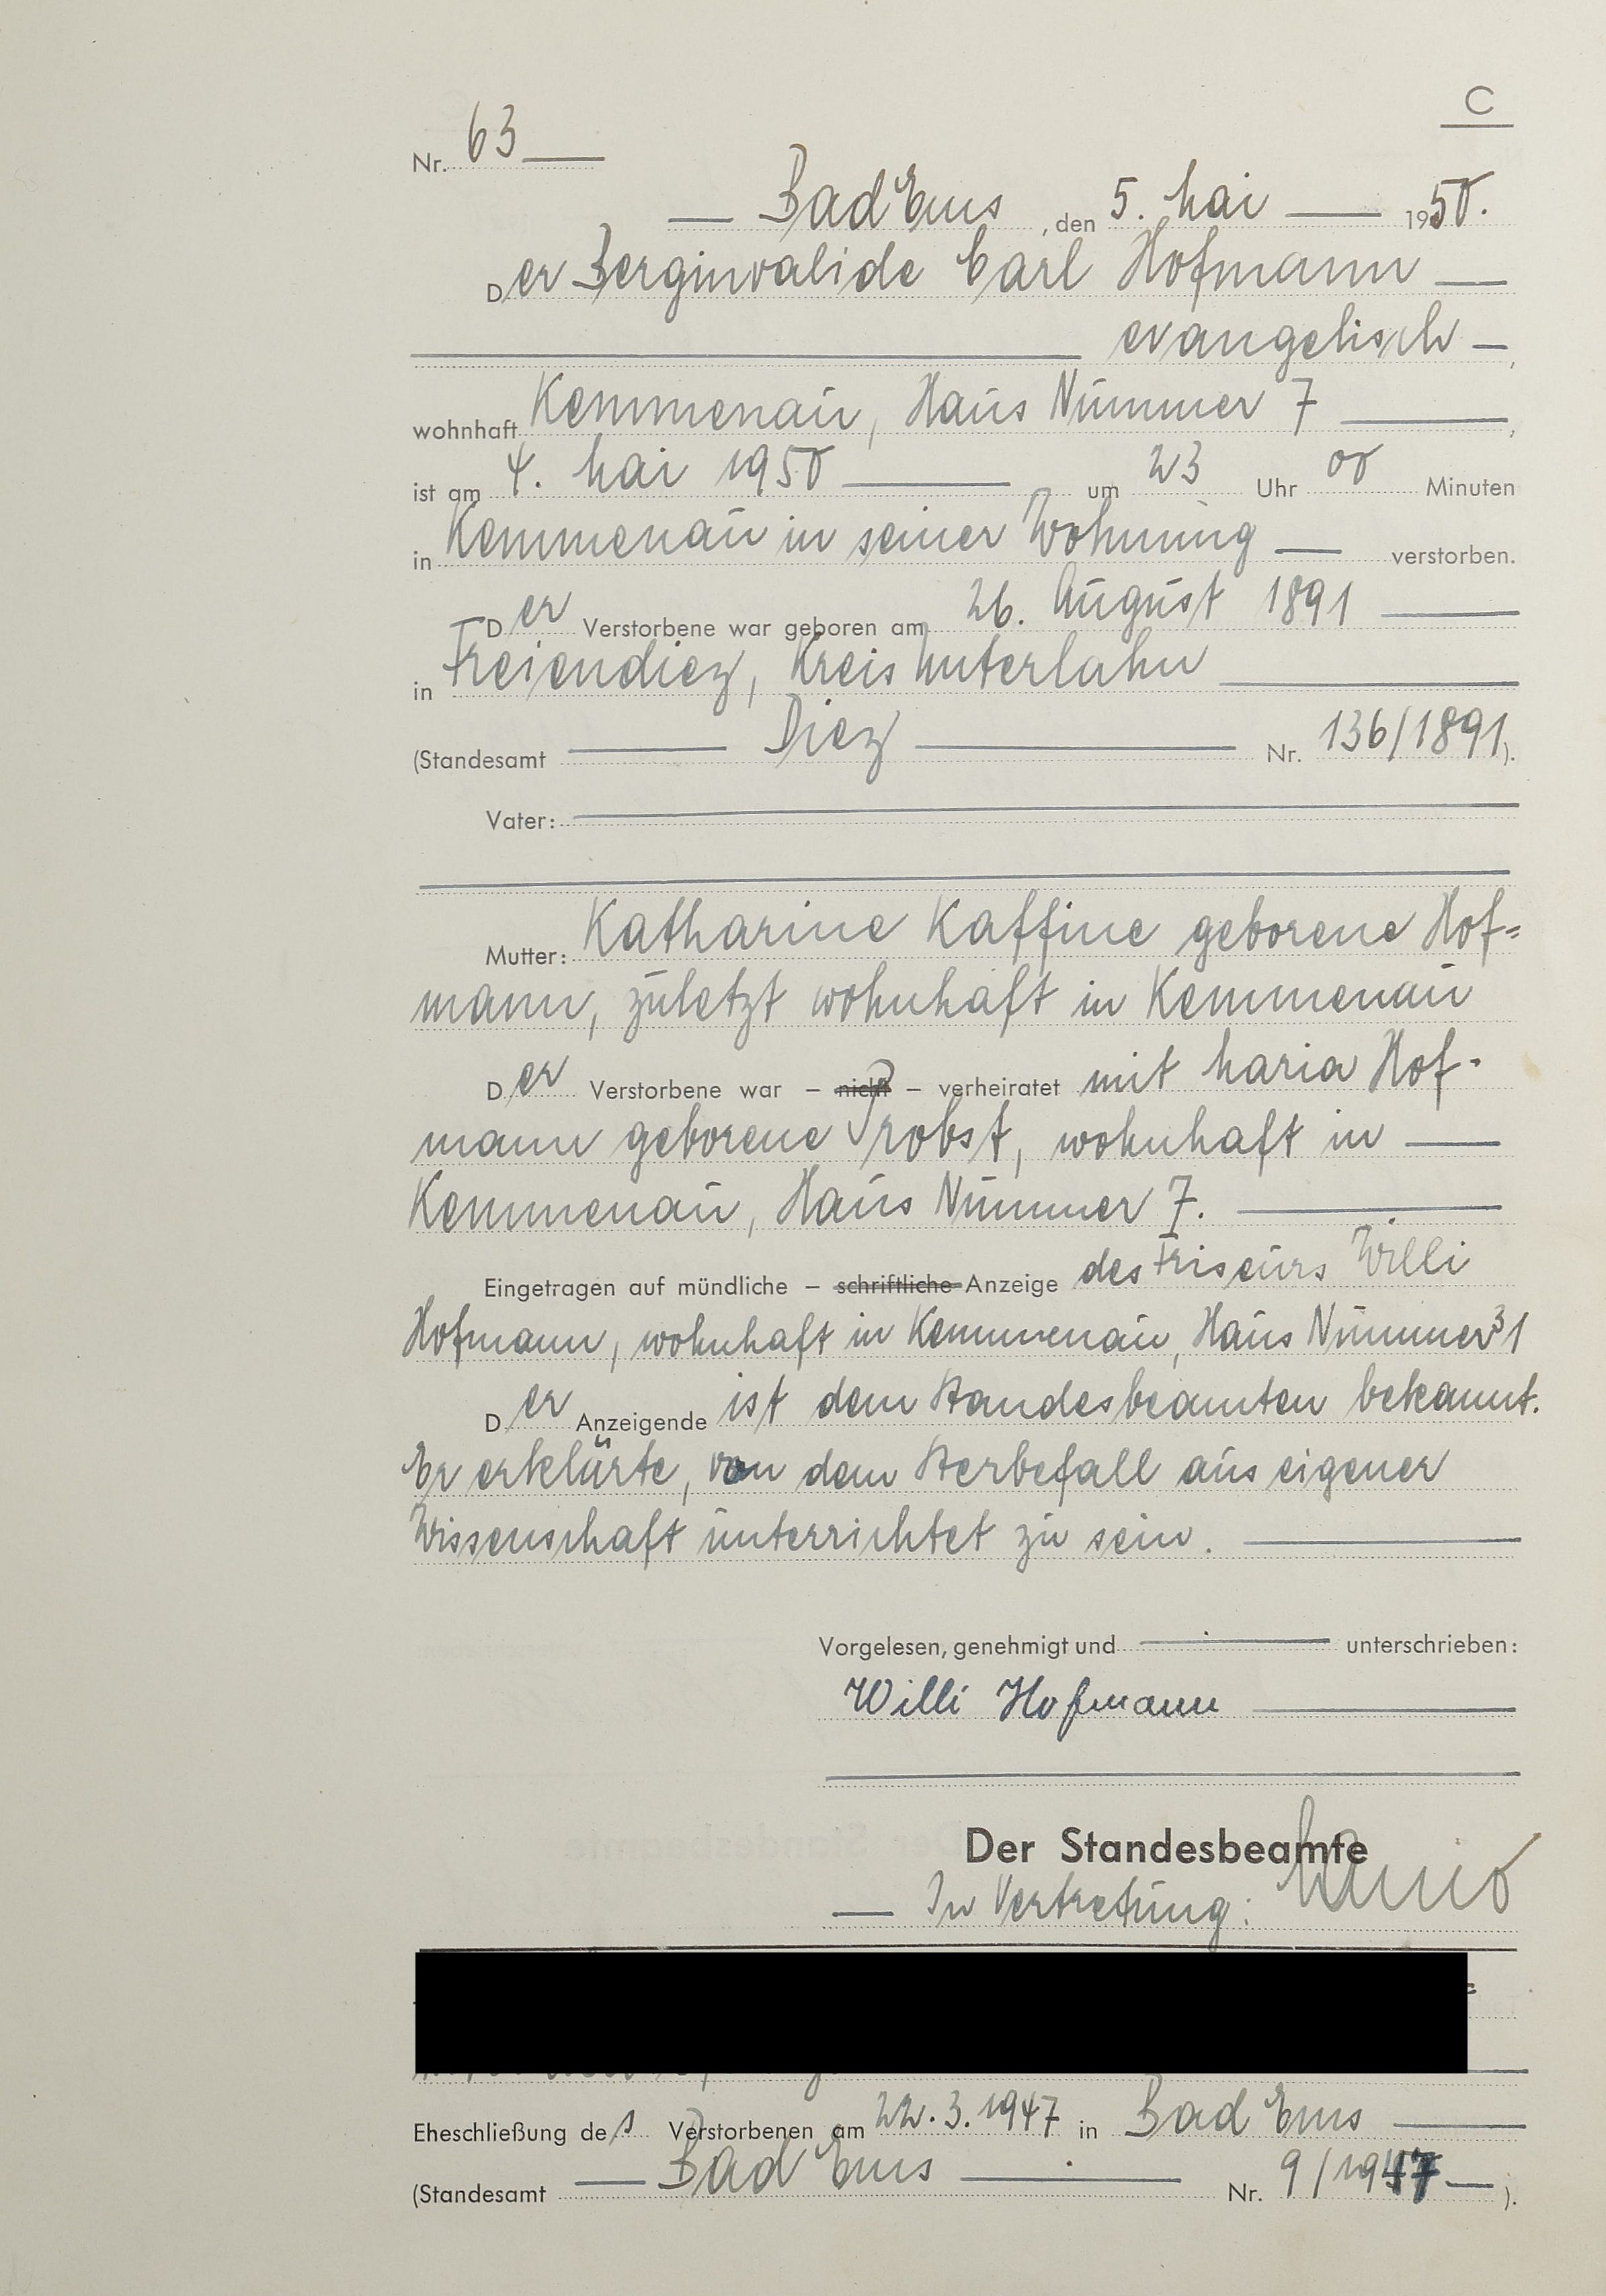 C
Nr. 63
Bad Ems, den 5. Mai 1950.
Der Berginvalide Carl Hofmann
evangelisch,
wohnhaft Kemmenau, Haus Nummer 7,
ist am 4. Mai 1950 um 23 Uhr 00 Minuten
in Kemmenau in seiner Wohnung verstorben.
Der Verstorbene war geboren am 26. August 1891
in Freiendiez, Kreis Unterlahn
(Standesamt Diez Nr. 136/1891).
Vater:
Mutter: Katharine Kaffine geborene Hof=
mann, zuletzt wohnhaft in Kemmenau
Der Verstorbene war – nicht – verheiratet mit Maria Hof-
mann geborene Probst, wohnhaft in
Kemmenau, Haus Nummer 7.
Eingetragen auf mündliche – schriftliche Anzeige des Friseurs Willi
Hofmann, wohnhaft in Kemmenau, Haus Nummer 31
Der Anzeigende ist dem Standesbeamten bekannt.
Er erklärte, von dem Sterbefall aus eigener
Wissenschaft unterrichtet zu sein.
Vorgelesen, genehmigt und unterschrieben:
Willi Hofmann
Der Standesbeamte
In Vertretung:
Eheschließung des Verstorbenen am 22.3.1947 in Bad Ems
(Standesamt Bad Ems Nr. 9/1947).